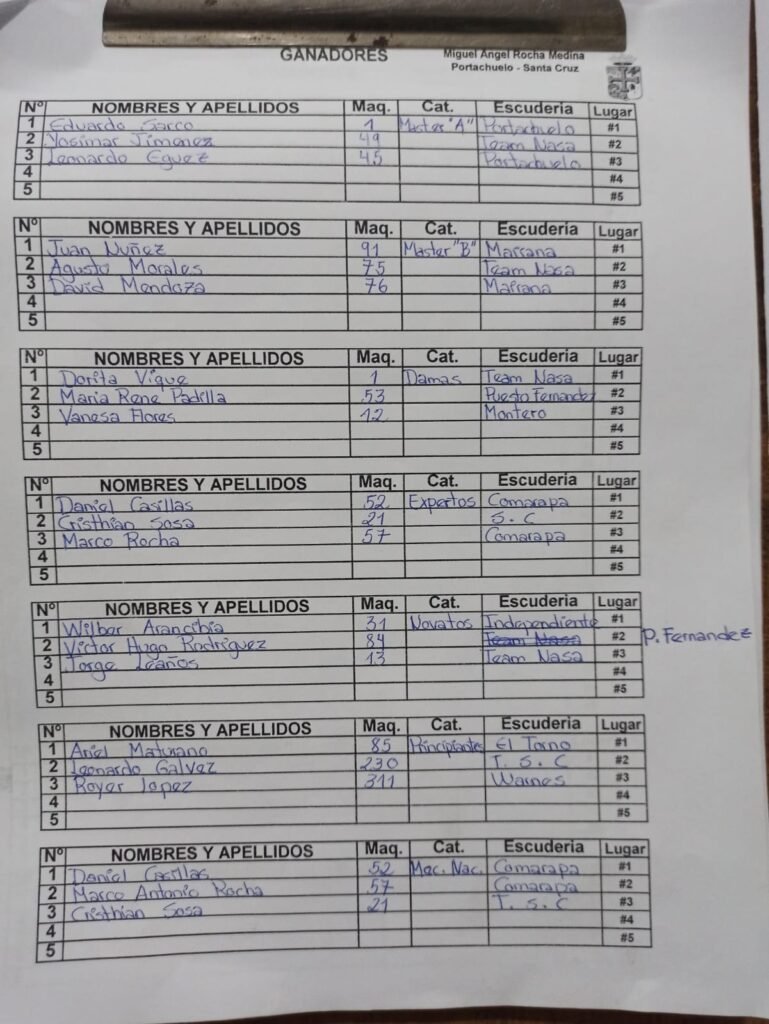 GANADORES
Miguel Angel Rocha Medina
Portachuelo - Santa Cruz
Nº NOMBRES Y APELLIDOS Maq. Cat. Escuderia Lugar
1 Eduardo Sarco 1 Master "A" Portachuelo #1
2 Yosimar Jimenez 49 Team Nasa #2
3 Leonardo Eguez 45 Portachuelo #3
4 #4
5 #5
Nº NOMBRES Y APELLIDOS Maq. Cat. Escuderia Lugar
1 Juan Nuñez 91 Master "B" Marrana #1
2 Agusto Morales 75 Team Nasa #2
3 David Mendoza 76 Marrana #3
4 #4
5 #5
Nº NOMBRES Y APELLIDOS Maq. Cat. Escuderia Lugar
1 Dorita Vique 1 Damas Team Nasa #1
2 Maria Rene Padilla 53 Puesto Fernandez #2
3 Vanesa Flores 12 Montero #3
4 #4
5 #5
Nº NOMBRES Y APELLIDOS Maq. Cat. Escuderia Lugar
1 Daniel Casillas 52 Expertos Comarapa #1
2 Cristhian Sosa 21 S. C #2
3 Marco Rocha 57 Comarapa #3
4 #4
5 #5
Nº NOMBRES Y APELLIDOS Maq. Cat. Escuderia Lugar
1 Wilbor Arancibia 31 Novatos Independiente #1
2 Victor Hugo Rodriguez 84 Team Nasa #2 P. Fernandez
3 Jorge Leaños 13 Team Nasa #3
4 #4
5 #5
Nº NOMBRES Y APELLIDOS Maq. Cat. Escuderia Lugar
1 Ariel Maturano 85 Principiantes El Torno #1
2 Leonardo Galvez 230 T. S. C #2
3 Royer Lopez 311 Warnes #3
4 #4
5 #5
Nº NOMBRES Y APELLIDOS Maq. Cat. Escuderia Lugar
1 Daniel Casillas 52 Mac. Nac. Comarapa #1
2 Marco Antonio Rocha 57 Comarapa #2
3 Cristhian Sosa 21 T. S. C #3
4 #4
5 #5